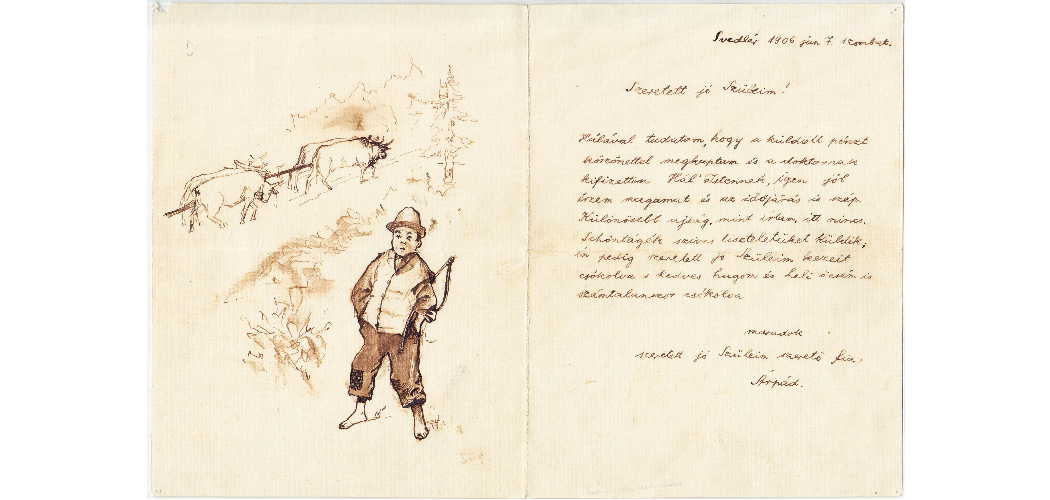 Svedlér 1906 jún 7. szombat.
Szeretett jó Szüleim!
Hálával tudatom, hogy a küldött pénzt
köszönettel megkaptam és a doktornak
kifizettem Hál' Istennek, igen jól
érzem magamat és az időjárás is szép.
Különösebb ujság, mint irtam, itt nincs.
Schöntágék szives tiszteletüket küldik;
én pedig szeretett jó Szüleim kezeit
csókolva s kedves hugom és Leli öcsém is
számtalanszor csókolva
maradok
szeretett jó Szüleim szerető fia.
Árpád.